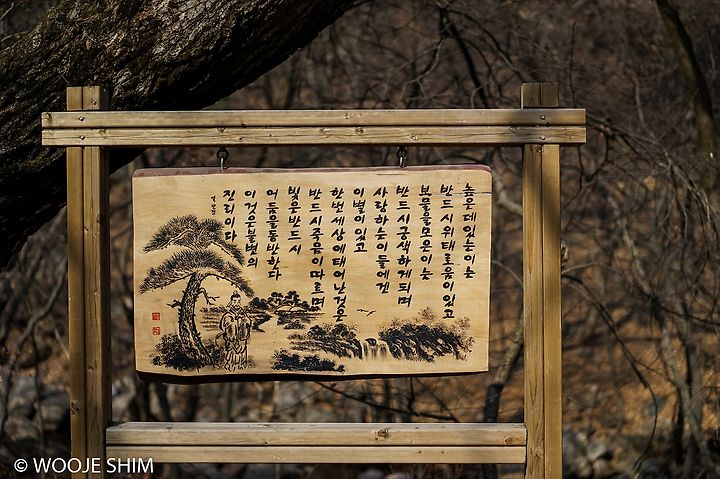 높은데 있는이는
반드시 위태로움이 있고
보물을 모은이는
반드시 궁색하게되며
사랑하는이들에겐
이별이 있고
한번 세상에 태어난것은
반드시 죽음이 따르며
빛은 반드시
어둠을 동반하다
이것은 불변의
진리이다
© WOOJE SHIM